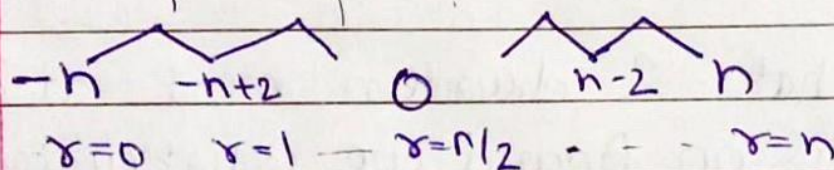 -n -n+2 0 n-2 n
r=0 r=1 — r=n/2 - - - r=n